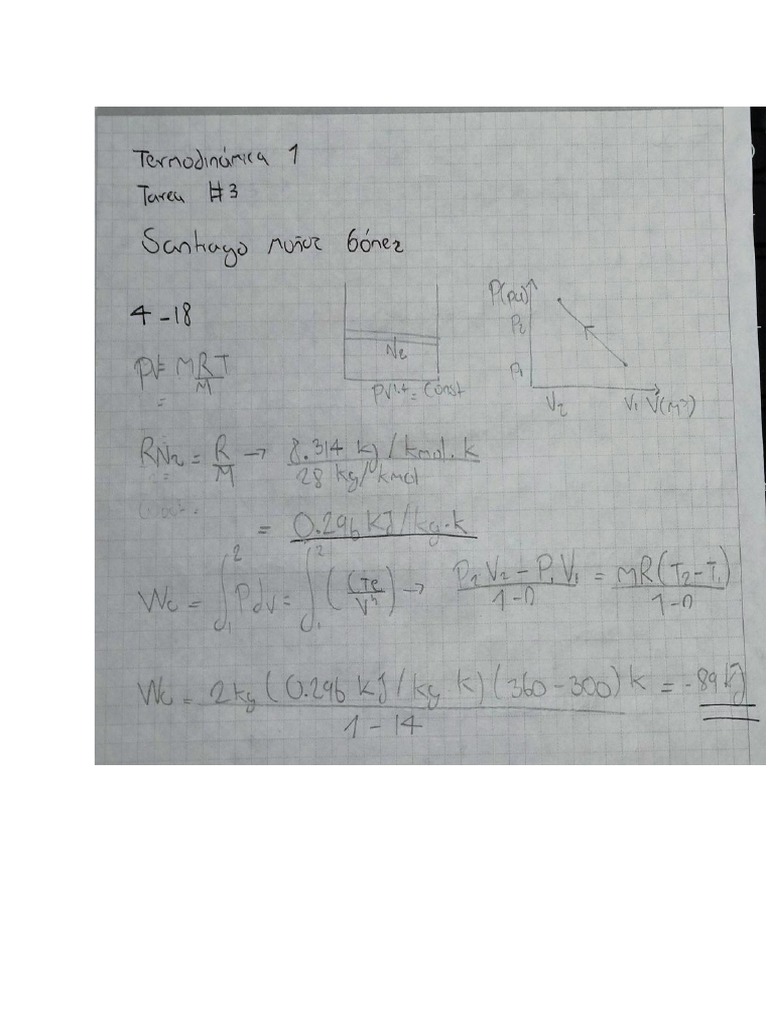 Termodinámica 1
Tarea #3
Santiago Muñoz Gómez
4-18
P(pa)
P2
P1
V2 V1 V(m³)
N2
PV^1.4 = Const
PV = MRT/M
RN2 = R/M → 8.314 kJ/kmol.k / 28 kg/kmol
= 0.296 KJ/kg.k
Wc = ∫₁² Pdv = ∫₁² (Cte/Vⁿ) → P2V2 - P1V1 / 1-n = MR(T2-T1) / 1-n
Wc = 2kg (0.296 KJ/kg k)(360-300)k / 1-14 = -89 kJ